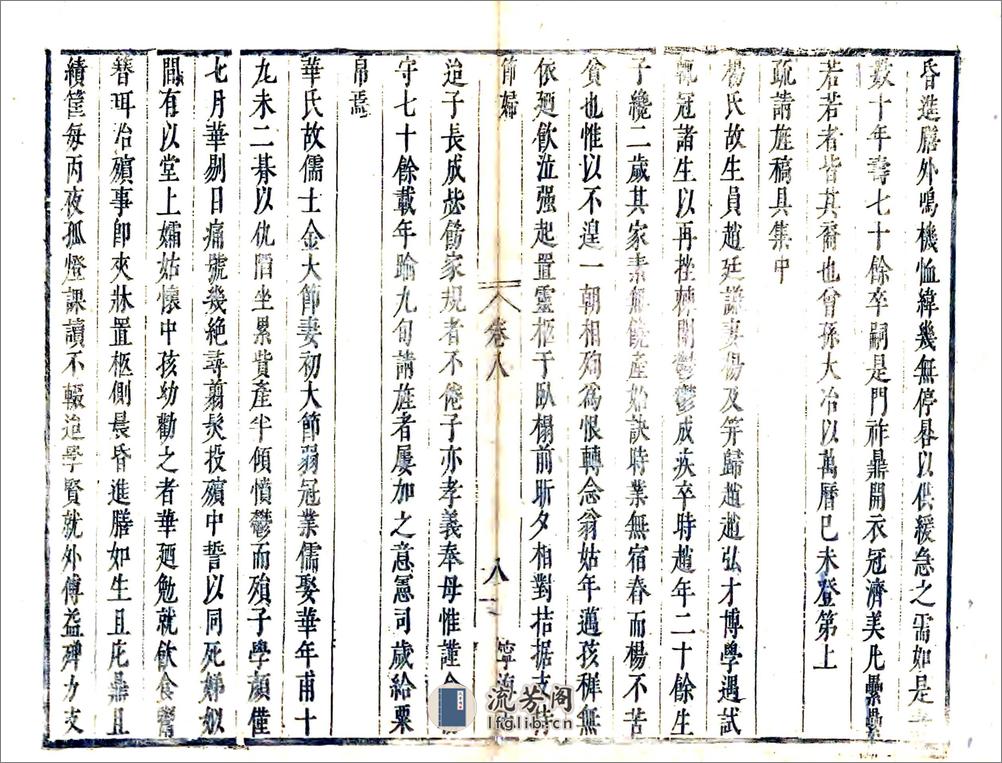 昏進膳外鳴機恤緯幾無停晷以供緩急之需如是
數十年壽七十餘卒嗣是門祚鼎開衣冠濟美凡纍纍
若若者皆其裔也曾孫大冶以萬曆己未登第上
疏請旌稿具集中
楊氏故生員趙廷謙妻楊及筓歸趙趙弘才博學遇試
輒冠諸生以再挫棘闈鬱鬱成疾卒時趙年二十餘生
子纔二歲其家素無饒產始訣時業無宿舂而楊不苦
貧也惟以不遑一朝相殉為恨轉念翁姑年邁孩穉無
依廼飲泣强起置靈柩于臥榻前昕夕相對拮据支持
節婦
卷八
八
寧海
迨子長成毖飭家規者不倦子亦孝義奉母惟謹
守七十餘載年踰九旬請旌者屢加之意憲司歲給粟
帛焉
華氏故儒士金大節妻初大節弱冠業儒娶華年甫十
九未二朞以仇陷坐累貲產半傾憤鬱而殞子學顏僅
七月華剔日痛號幾絕尋剪髮投殯中誓以同死娣姒
間有以堂上孀姑懷中孩幼勸之者華廼勉就飲食鬻
簪珥治殯事即夾牀置柩側晨昏進膳如生且庀鼎且
績篚每丙夜孤燈課讀不輟迨學賢就外傅益殫力支
流芳阁
lfglib.com